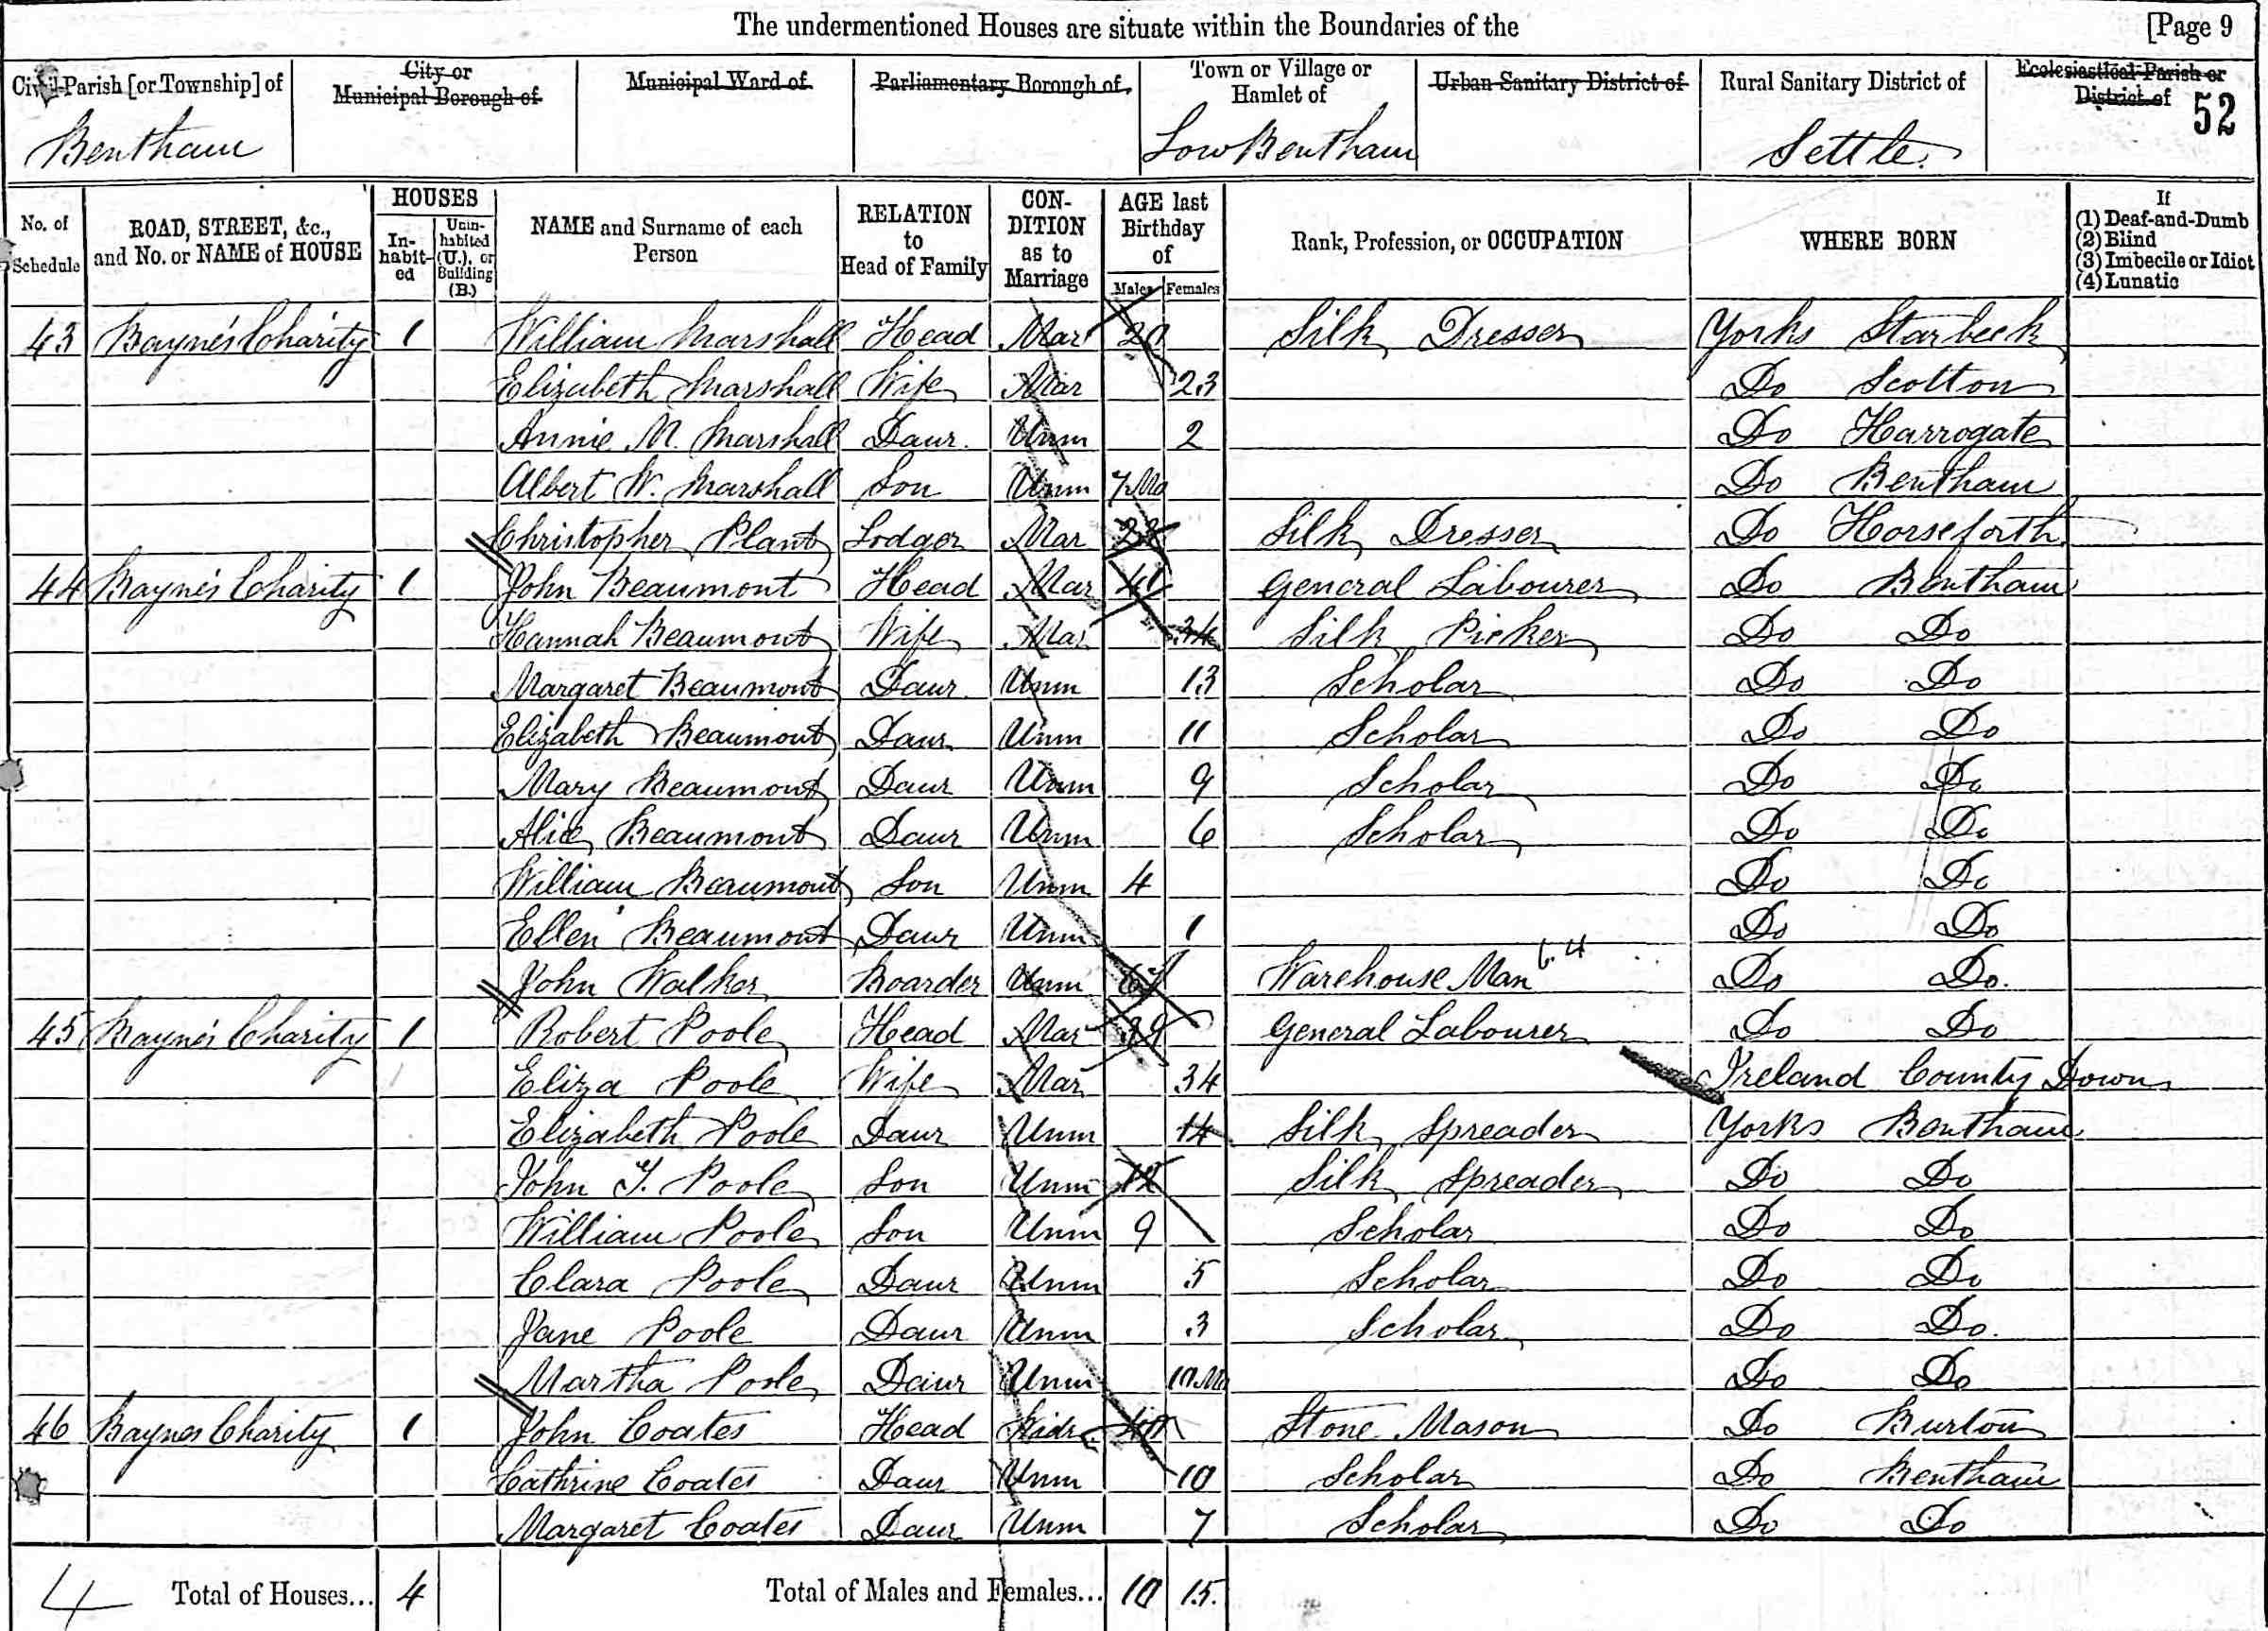 The undermentioned Houses are situate within the Boundaries of the [Page 9
Civil Parish [or Township] of City or Municipal Borough of Municipal Ward of Parliamentary Borough of Town or Village or Hamlet of Urban Sanitary District of Rural Sanitary District of Ecclesiastical Parish or District of 52
Bentham Low Bentham Settle
No. of Schedule ROAD, STREET, &c., and No. or NAME of HOUSE HOUSES Inhabited Uninhabited (U.), or Building (B.) NAME and Surname of each Person RELATION to Head of Family CONDITION as to Marriage AGE last Birthday of Males Females Rank, Profession, or OCCUPATION WHERE BORN If (1) Deaf-and-Dumb (2) Blind (3) Imbecile or Idiot (4) Lunatic
43 Bayne's Charity 1 William Marshall Head Mar Silk Dresser Yorks Starbeck
Elizabeth Marshall Wife Mar 23 Do Scotton
Annie M. Marshall Daur. Unm 2 Do Harrogate
Albert W. Marshall Son Unm 7 Mo Do Bentham
Christopher Plant Lodger Mar Silk Dresser Do Horseforth
44 Bayne's Charity 1 John Beaumont Head Mar 41 General Labourer Do Bentham
Hannah Beaumont Wife Mar 34 Silk Picker Do Do
Margaret Beaumont Daur. Unm 13 Scholar Do Do
Elizabeth Beaumont Daur Unm 11 Scholar Do Do
Mary Beaumont Daur Unm 9 Scholar Do Do
Alice Beaumont Daur Unm 6 Scholar Do Do
William Beaumont Son Unm 4 Do Do
Ellen Beaumont Daur Unm 1 Do Do
John Walker Boarder Unm 67 Warehouse Man Do Do.
45 Bayne's Charity 1 Robert Poole Head Mar 39 General Labourer Do Do
Eliza Poole Wife Mar 34 Ireland County Down
Elizabeth Poole Daur Unm 14 Silk Spreader Yorks Bentham
John T. Poole Son Unm 12 Silk Spreader Do Do
William Poole Son Unm 9 Scholar Do Do
Clara Poole Daur Unm 5 Scholar Do Do
Jane Poole Daur Unm 3 Scholar Do Do.
Martha Poole Daur Unm 10 Mo Do Do
46 Baynes Charity 1 John Coates Head Widr 40 Stone Mason Do Burton
Cathrine Coates Daur Unm 10 Scholar Do Bentham
Margaret Coates Daur Unm 7 Scholar Do Do
4 Total of Houses... 4 Total of Males and Females... 10 15